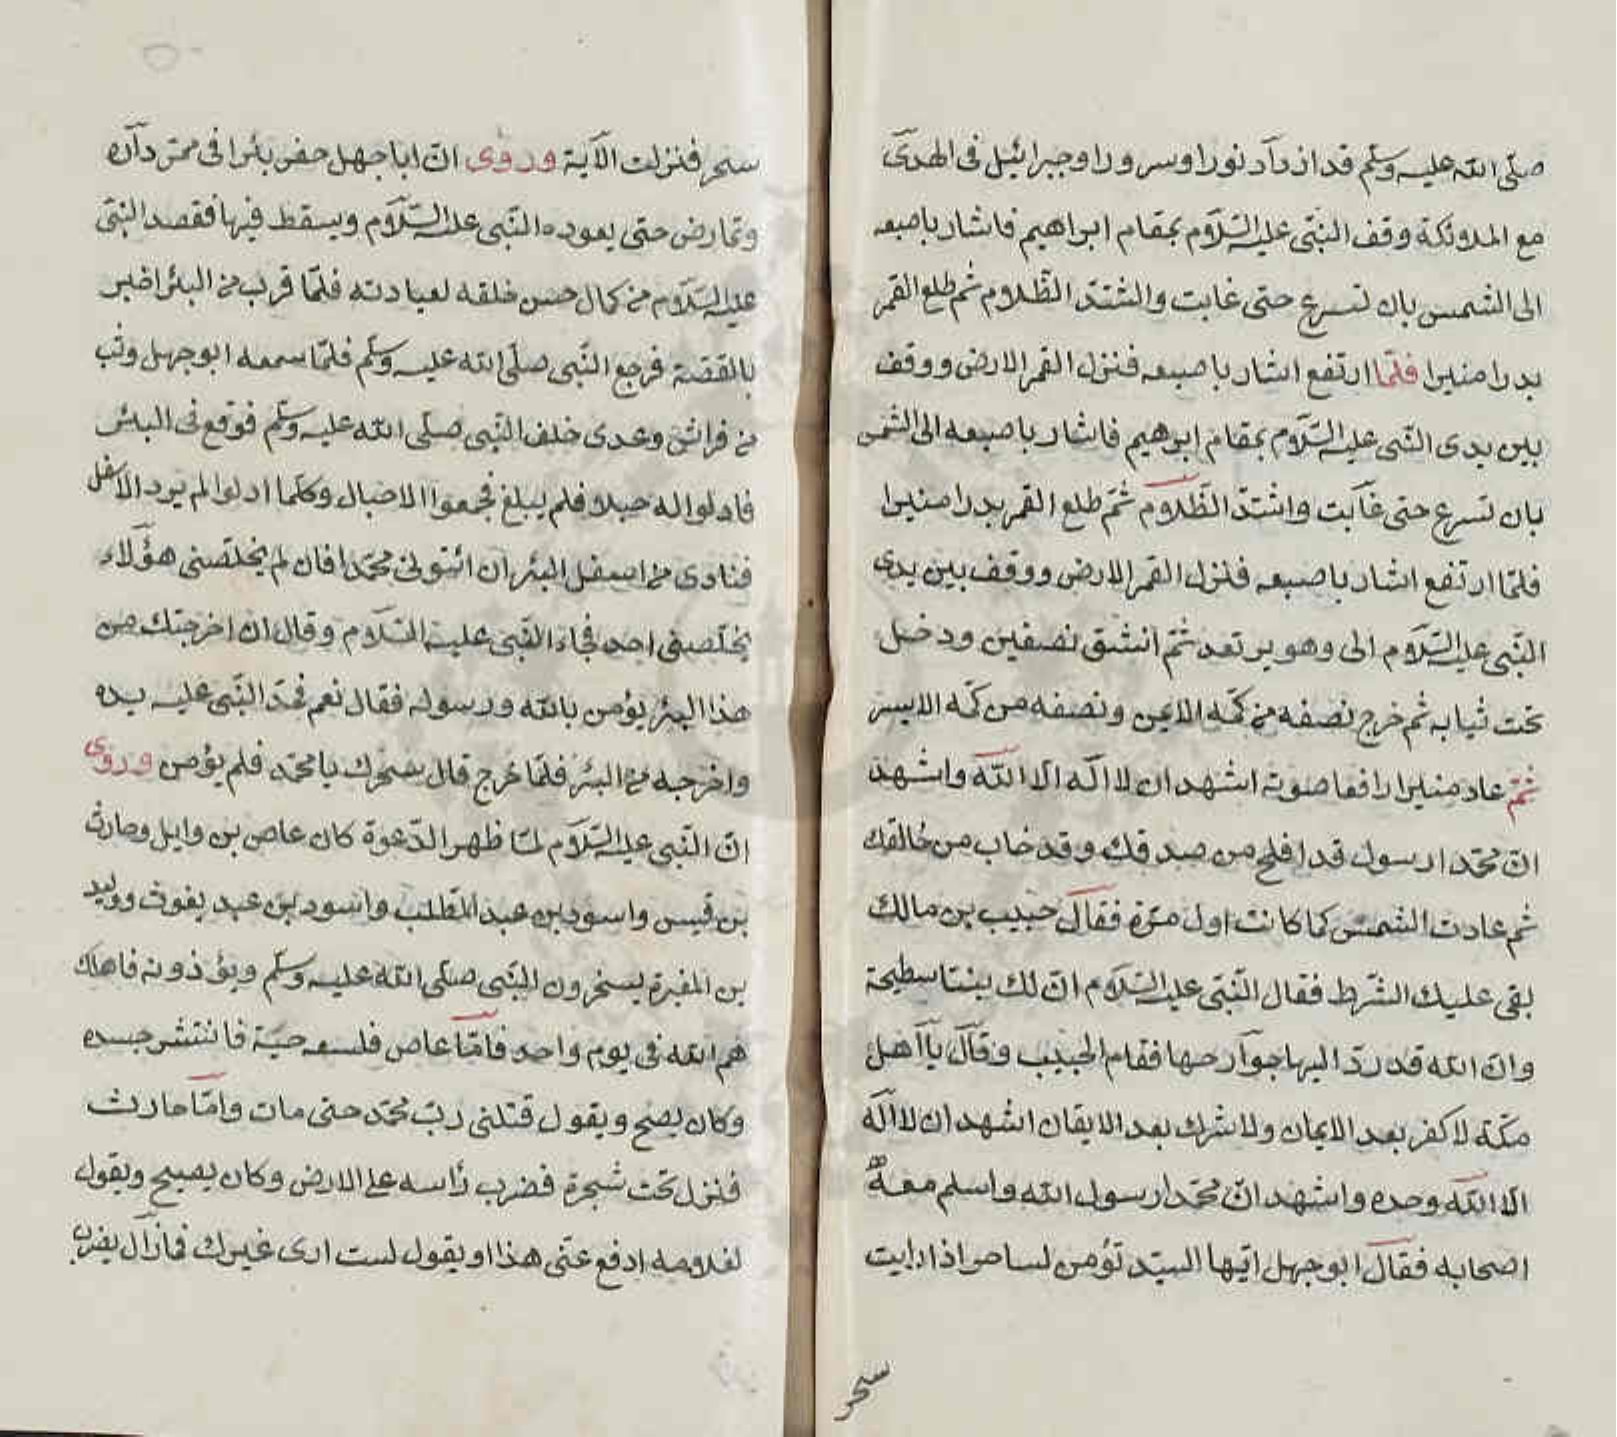 صلّى الله عليه وسلّم قد ازدآد نورا وسرورا وجبرائيل فى الهدىّ
مع الملائكة وقف النبّى عليه السّلآم بمقام ابراهيم فاشار باصبعه
الى الشمس بان تسرع حتى غابت والشتدّ الظّلام ثم طلع القمر
بدرا منيرا فلمّا ارتفع اشار باصبعه فنزل القمر الارض ووقف
بين يدى النّبى عليه السّلآم بمقام ابرهيم فاشار باصبعه الى الشمس
بان تسرع حتى غآبت واشتدّ الظّلآم ثمّ طلع القمر بدرا منيرا
فلمّا ارتفع اشار باصبعه فنزل القمر الارض ووقف بين يدى
النّبى عليه السّلآم الى وهو يرتعد ثمّ انشق نصفين ودخل
تحت ثيابه ثم خرج نصفه من كمّه الايمن ونصفه من كمّه الايسر
ثمّ عاد منيرا رافعا صوته اشهد ان لا اله الّا اللّه واشهد
انّ محمّدا رسول قد افلح من صدقك وقد خاب من خالفك
ثم عادت الشمس كما كانت اول مرّة فقآل حبيب بن مالك
بقى عليك الشّرط فقال النّبّى عليه السّلآم انّ لك بنتا سطيحة
وان الله قد ردّ اليها جوآرحها فقام الحبيب وقآل يآ اهل
مكّة لا كفر بعد الايمان ولا شرك بعد الايقان اشهد ان لا اله
الّا اللّه وحده واشهد انّ محمّدا رسول الله واسلم معه
اصحابه فقآل ابو جهل ايّها السيّد تؤمن لساحر اذا رايت
سحر
سحر فنزلت الآية وروى انّ ابا جهل حفر بئرا فى ممرّ دآره
وتمارض حتى يعوده النّبى عليه السّلآم ويسقط فيها فقصد النبّى
عليه السّلآم من كمال حسن خلقه لعيادته فلمّا قرب من البئر اخبر
بالقصّة فرجع النّبى صلّى الله عليه وسلّم فلمّا سمعه ابو جهل وثب
من فراشه وعدى خلف النّبى صلّى الله عليه وسلّم فوقع فى البئر
فادلوا له حبلا فلم يبلغ فجمعوا الاحبال وكلّما ادلوا لم يرد الاسفل
فنادى من اسفل البئر ان ائتونى محمّدا فان لم يخلّصنى هؤلاء
يخلّصنى احد فجاء النّبى عليه السّلآم وقال ان اخرجتك من
هذا البئر يؤمن بالله ورسوله فقال نعم فمدّ النّبى عليه يده
واخرجه من البئر فلمّا خرج قال سحرك يا محمّد فلم يؤمن وروى
انّ النّبى عليه السّلآم لمّا ظهر الدّعوة كان عاص بن وايل وحارث
بن قيس واسود بن عبد المطّلب واسود بن عبد يغوث ووليد
بن المغيرة يسخرون النّبى صلّى الله عليه وسلّم ويؤذونه فاهلك
هم الله فى يوم واحد فامّا عاص فلسعه حيّة فانتشر جسده
وكان يصح ويقول قتلنى ربّ محمّد حتى مات وامّا حارث
فنزل تحت شجرة فضرب رأسه على الارض وكان يصيح ويقول
لغلامه ادفع عنّى هذا او يقول لست ارى غيرك فمازآل يضرب